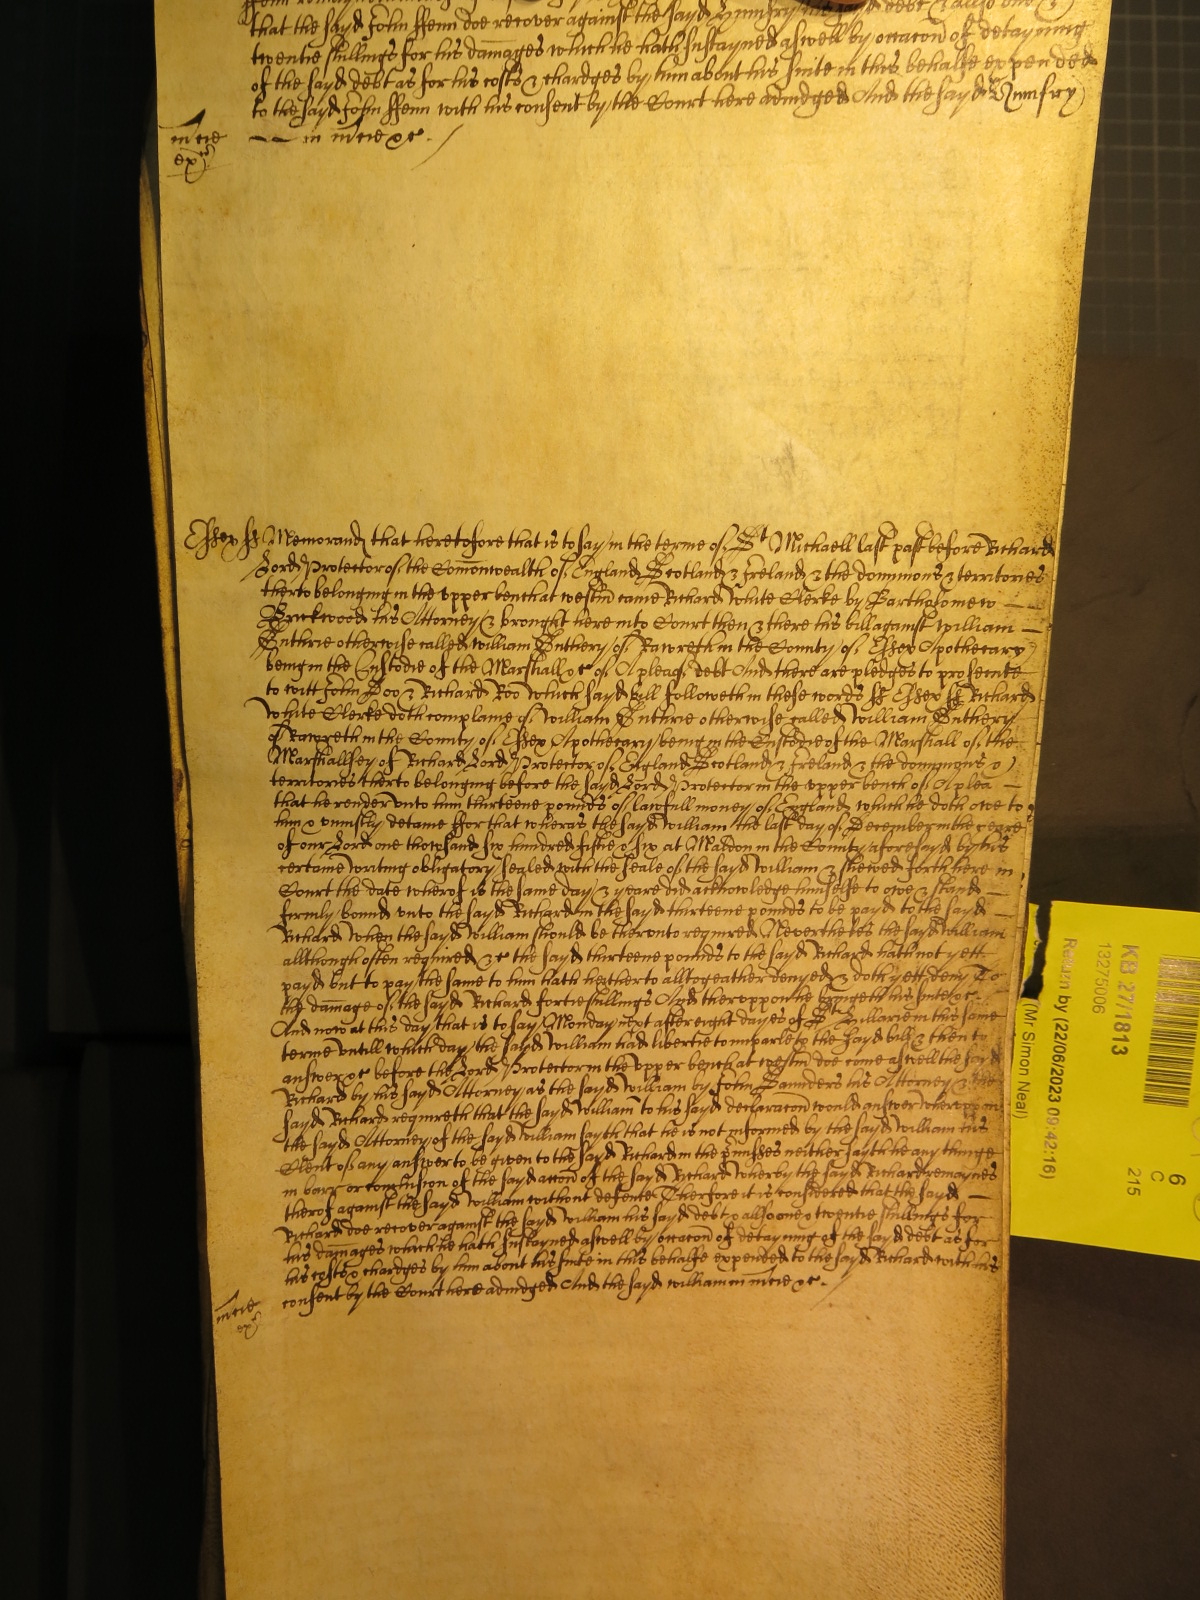 that the sayd John ffenn doe recover against the sayd Humfry his sayd debt & allsoe one &
twentie shillings for his damages which he hath susteyned aswell by occacon of detayning
of the sayd debt as for his costs & chardges by him about his suite in this behalfe expended
to the sayd John ffenn with his consent by the Court here adiudged And the sayd Humfry
in mcie &c.
mcie
exr
Essex ss Memorand that heretofore that is to say in the terme of St Michaell last past before Richard
Lord Protector of the Commonwealth of England Scotland & Ireland & the dominions & territories
therto belonging in the vpper bench at westm came Richard White Clerke by Bartholomew
Brickwood his Attorney & brought here into Court then & there his bill against William
Guthrie otherwise called william Guthery of Rawreth in the County of Essex Apothecary
being in the Custodie of the Marshall &c of A plea of debt And there are pledges to prosecute
to witt John Doo & Richard Roo which sayd bill followeth in these words ss Essex ss Richard
White Clerke doth complaine of William Guthrie otherwise called William Guthery
of Rawreth in the County of Essex Apothecary being in the Custodie of the Marshall of the
Marshallsey of Richard Lord Protector of England Scotland & Ireland & the dominions &
territories therto belonging before the sayd Lord Protector in the vpper bench of A plea
that he render vnto him thirteene pounds of lawfull money of England which he doth owe to
him & vniustly detaine ffor that wheras the sayd William the last day of December in the yeare
of our Lord one thowsand six hundred fiftie & six at Maldon in the County aforesayd by his
certaine writing obligatory sealed with the seale of the sayd William & shewed forth here in
Court the date wherof is the same day & yeare did acknowledge himselfe to owe & stand
firmly bound vnto the sayd Richard in the sayd thirteene pounds to be payd to the sayd
Richard when the sayd William should be therunto required Neverthelès the sayd William
allthough often required &c the sayd thirteene pounds to the sayd Richard hath not yett
payd but to pay the same to him hath heatherto alltogeather denyed & doth yett deny To
the damage of the sayd Richard fortie shillings And thereuppon he bringeth his suite &c.
And now at this day that is to say Monday next after eight dayes of St Hillarie in this same
terme vntill which day the sayd William had libertie to imparle to the sayd bill & then to
answer &c before the Lord Protector in the vpper bench at westm doe come aswell the sayd
Richard by his sayd Attorney as the sayd William by John Saunders his Attorney & the
sayd Richard requireth that the sayd William to his sayd declaracon would answer wheruppon
the sayd Attorney of the sayd William sayth that he is not informed by the sayd William his
Clent of any answer to be given to the sayd Richard in the pmisses neither sayth he any thinge
in barr or conclusion of the sayd accon of the sayd Richard Wherby the sayd Richard remaynes
therof against the sayd William without defence Therfore it is considered that the sayd
Richard doe recover against the sayd William his sayd debt & alsoe one & twentie shillings for
his damages which he hath susteyned aswell by occacon of detayning of the sayd debt as for
his costs & chardges by him about his suite in this behalfe expended to the sayd Richard with his
consent by the Court here adiudged And the sayd William in mcie &c.
mcie
exr
KB 27/1813
13275006
Return by (22/06/2023 09:42:16)
(Mr Simon Neal)
6
C
215